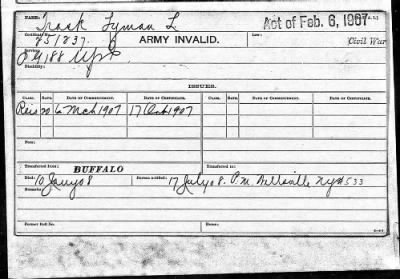 NAME: Trask Lyman L
Act of Feb. 6, 1907
Certificate No.: 851837.
ARMY INVALID.
Law:
Civil War
Service: 188 N.Y.
Disability:
ISSUES.
CLASS. RATE. DATE OF COMMENCEMENT. DATE OF CERTIFICATE. CLASS. RATE. DATE OF COMMENCEMENT. DATE OF CERTIFICATE.
Reis 20 6 Mch 1907 17 Oct 1907
Fees:
Transferred to:
Transferred from:
BUFFALO
Died: 10 Jany 08
Bureau notified: 17 July 08. P.M. Wellsville NY # 533
Remarks:
Former Roll No.
Home: